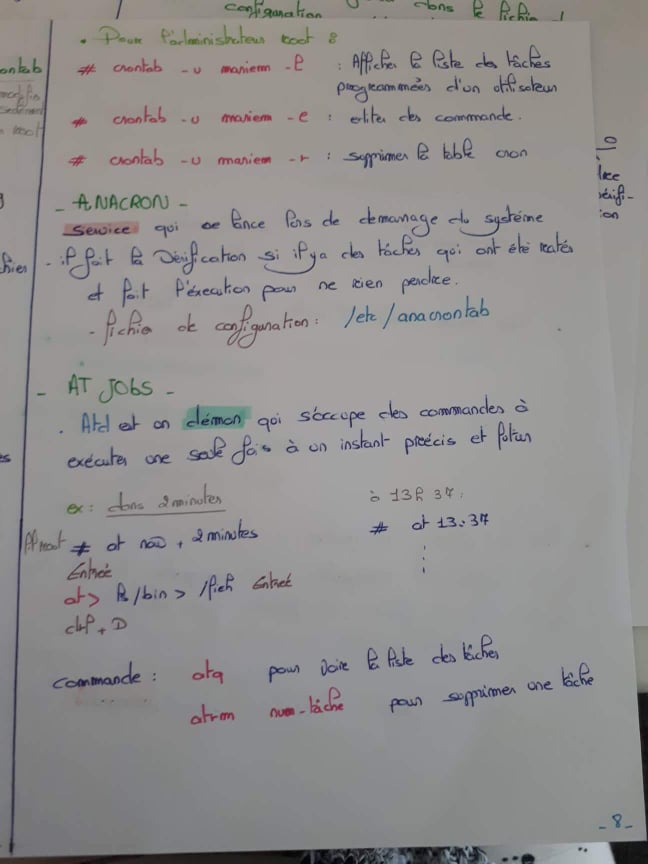 configuration dans le fichier
• Pour l'administrateur root :
# crontab -u mariem -l : Afficher la liste des tâches
programmées d'un utilisateur
# crontab -u mariem -e : editer des commande.
# crontab -u mariem -r : supprimer la table cron
- ANACRON -
service qui se lance lors de demarrage du système
- il fait la vérification si il y a des tâches qui ont été ratés
et fait l'éxecution pour ne rien perdre.
- fichier de configuration : /etc/anacrontab
- AT JOBS -
. Atd est un démon qui s'occupe des commandes à
exécuter une seule fois à un instant précis et futur
ex : dans 2 minutes
# at now + 2 minutes
Entrée
at> ls /bin > /fich Entrée
ctrl + D
à 13h 37 :
# at 13:37
commande : atq pour voir la liste des tâches
atrm num-tâche pour supprimer une tâche
- 8 -